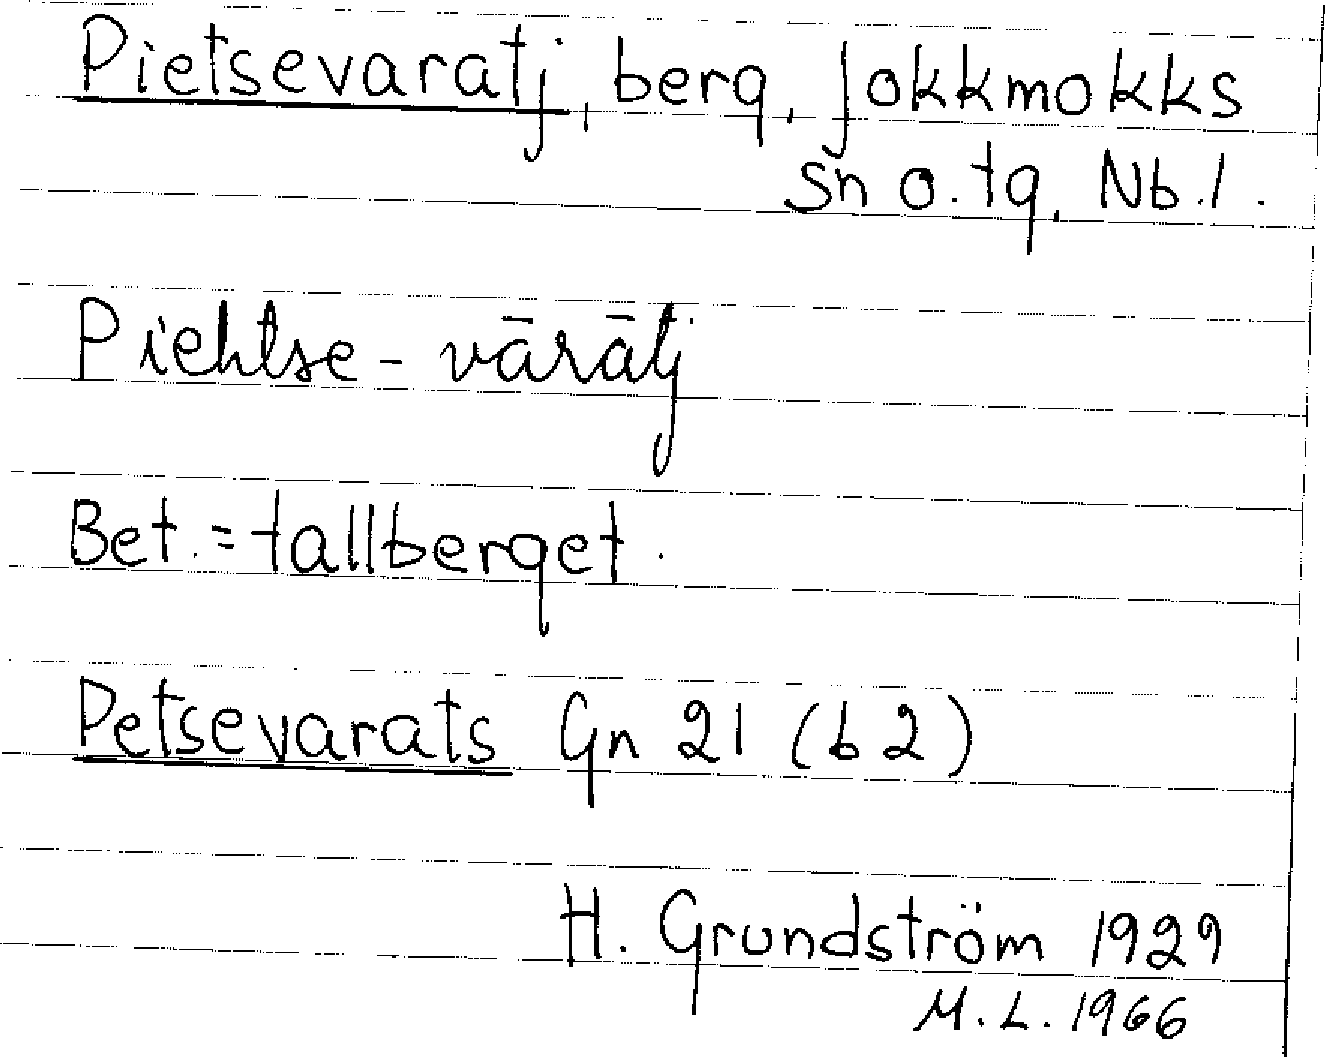 Pietsevaratj, berg, Jokkmokks
sn o. tg, Nb.l.
Piehtse-vārātj
Bet. = tallberget.
Petsevarats Gn 21 (b2)
H. Grundström 1929
M.L. 1966